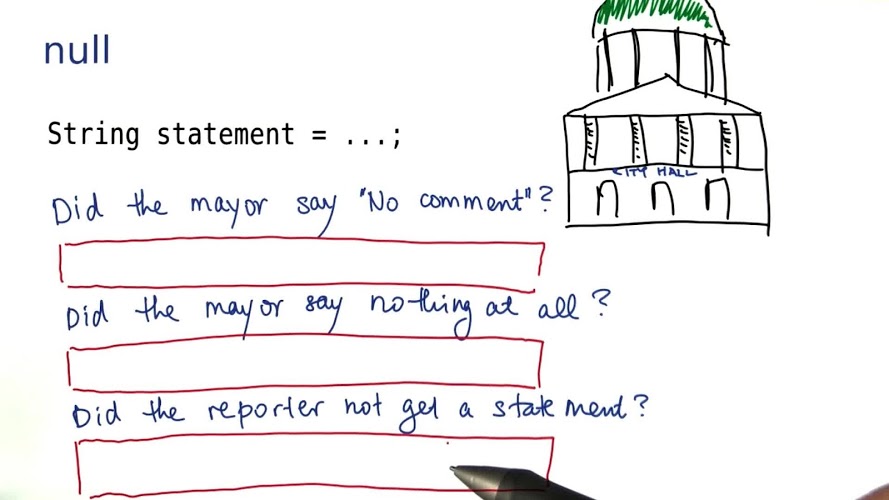 null
String statement = ...;
CITY HALL
Did the mayor say "No comment"?
Did the mayor say nothing at all?
Did the reporter not get a statement?